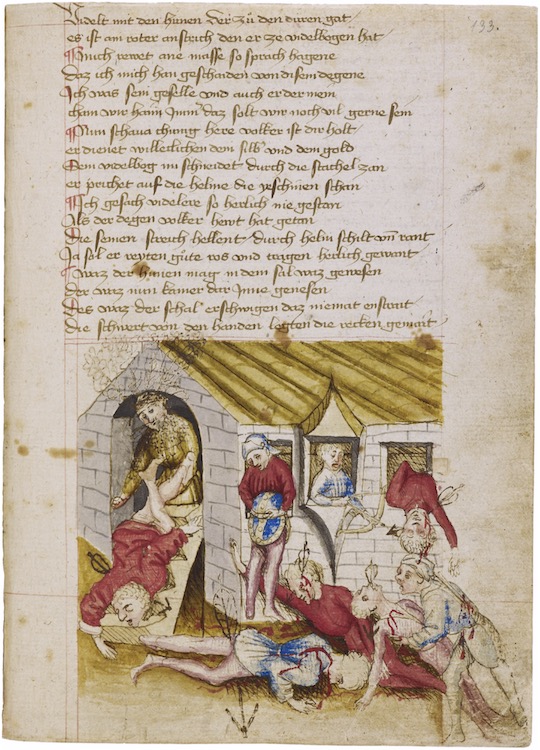 133.
Videlt mit den hunen Der zü den duren gat
es ist am roter anstrich den er ze videlbogen hat
Mich rewet ane masse so sprach hagene
daz ich mich han geschaiden von disem degene
Ich was sein geselle und auch er der mein
cham wir haim Imm̄ daz solt wir noch vil gerne sein
Nun schawa chunig here volker ist dir holt
er dienet willeclichen dem silb̄ und dem gold
Sein videlbog im schneidet durch die stachel zan
er prichet auf die helme die schan
Ich gesach videlere so herlich nie gestan
Als der degen volker hewt hat getan
Die seinen streich hellent durch helm schilt vn̄ rant
Ja sol er reyten gute ros und tragen herlich gewant
Waz der hunen mag in dem sal waz gewesen
Der waz nun kainer dar Inne genesen
Des waz der schal erschwigen daz niemat enstrait
Die schwert von den handen legten die recken gemait